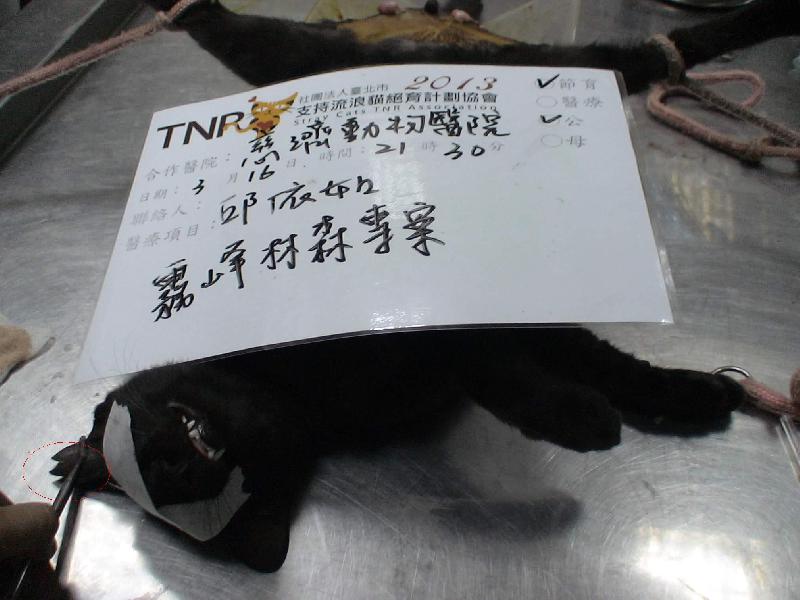 2013
社團法人臺北市
TNR 支持流浪貓絕育計劃協會
Stray Cats TNR Association
節育
醫療
公
母
合作醫院：慈濟動物醫院
日期：3月16日，時間：21時30分
聯絡人：邱依如
醫療項目：
霧峰林森專案